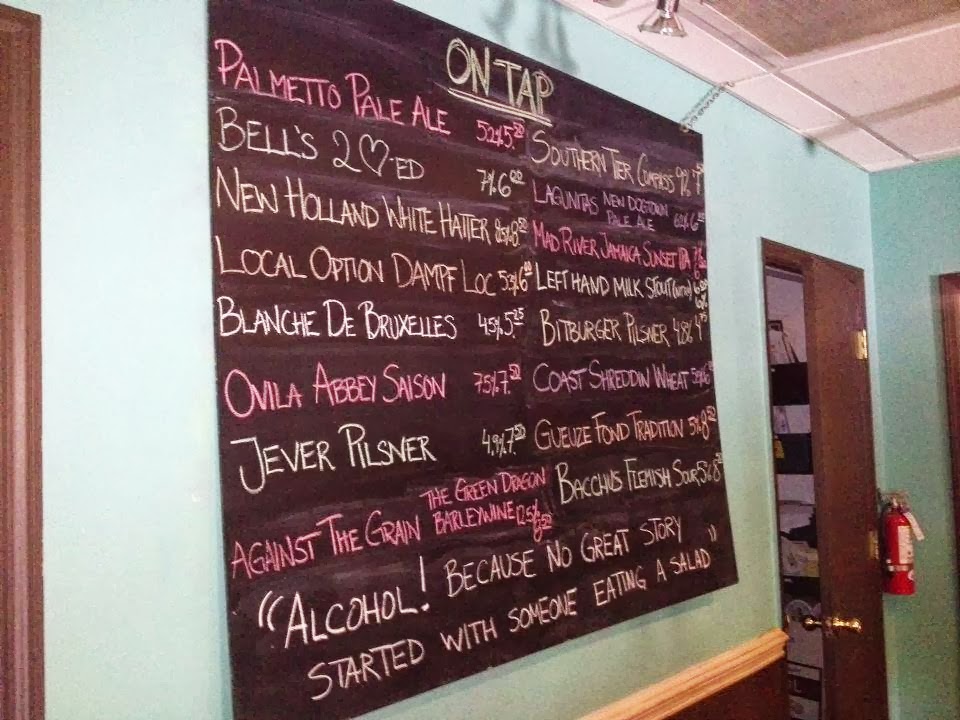 ON TAP
PALMETTO PALE ALE 5.2% 5.50
BELL'S 2♡ED 7% 6.00
NEW HOLLAND WHITE HATTER 8.5% 8.50
LOCAL OPTION DAMPF LOC 5.3% 6.00
BLANCHE DE BRUXELLES 4.5% 5.25
OVILA ABBEY SAISON 7.5% 7.50
JEVER PILSNER 4.9% 7.50
AGAINST THE GRAIN THE GREEN DRAGON
BARLEYWINE 12.5%
SOUTHERN TIER COMPASS 9%
LAGUNITAS NEW DOGTOWN
PALE ALE
MAD RIVER JAMAICA SUNSET IPA
LEFT HAND MILK STOUT (NITRO)
BITBURGER PILSNER 4.8% 4.75
COAST SHREDDIN WHEAT
GUEUZE FOND TRADITION 5% 8.50
BACCHUS FLEMISH SOUR
"ALCOHOL! BECAUSE NO GREAT STORY
STARTED WITH SOMEONE EATING A SALAD"